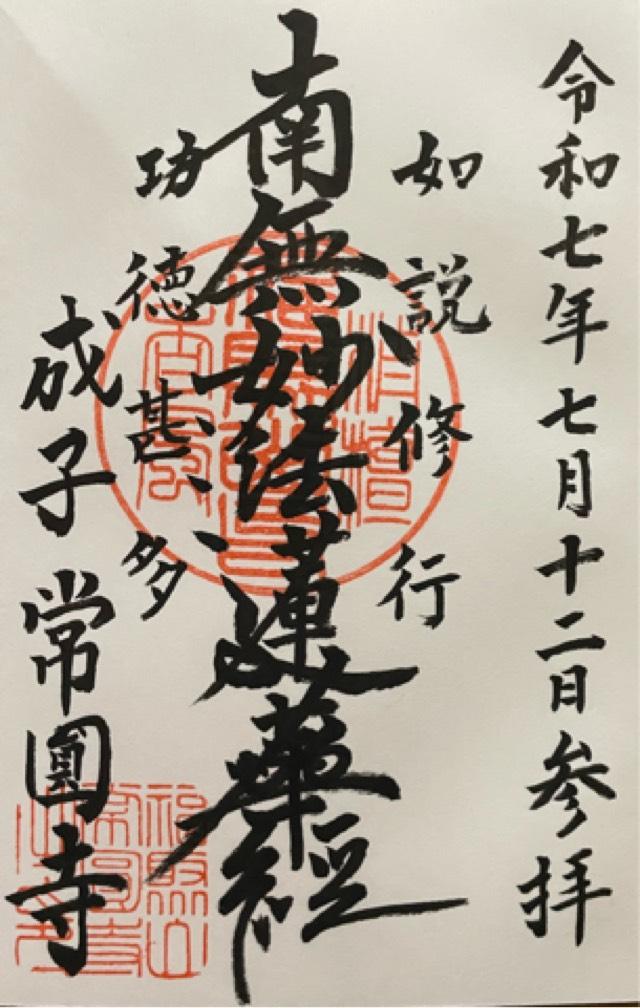 令和七年七月十二日参拝
如説修行
南無妙法蓮華經
功徳甚多
成子常圓寺